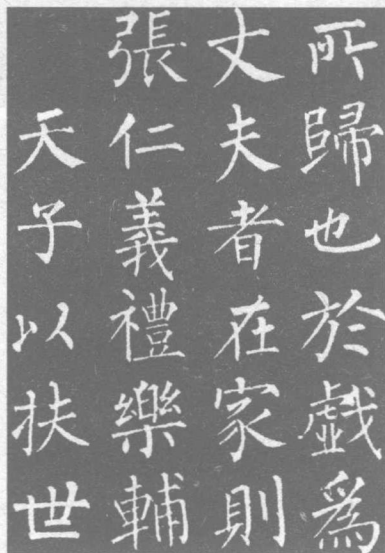 所歸也於戯爲
丈夫者在家則
張仁義禮樂輔
天子以扶世